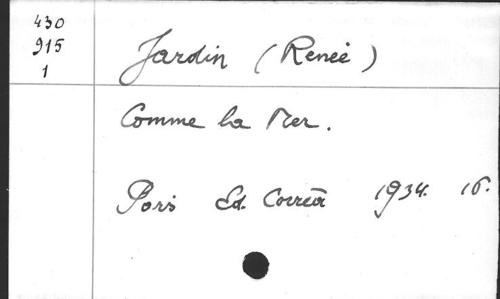 430
915
1
Jardin (Renée)
Comme la Mer.
Paris Ed. Corrêa 1934. 16.